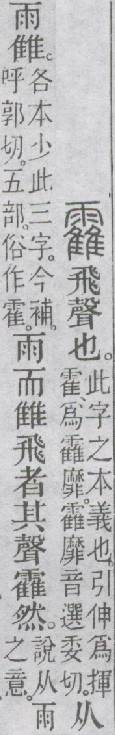 靃飛聲也。此字之本義也。引伸爲揮霍、爲靃靡。靃靡音選委切。从
雨雔。各本少此三字。今補。呼郭切。五部。俗作霍。雨而雔飛者其聲靃然。說从雨之意。